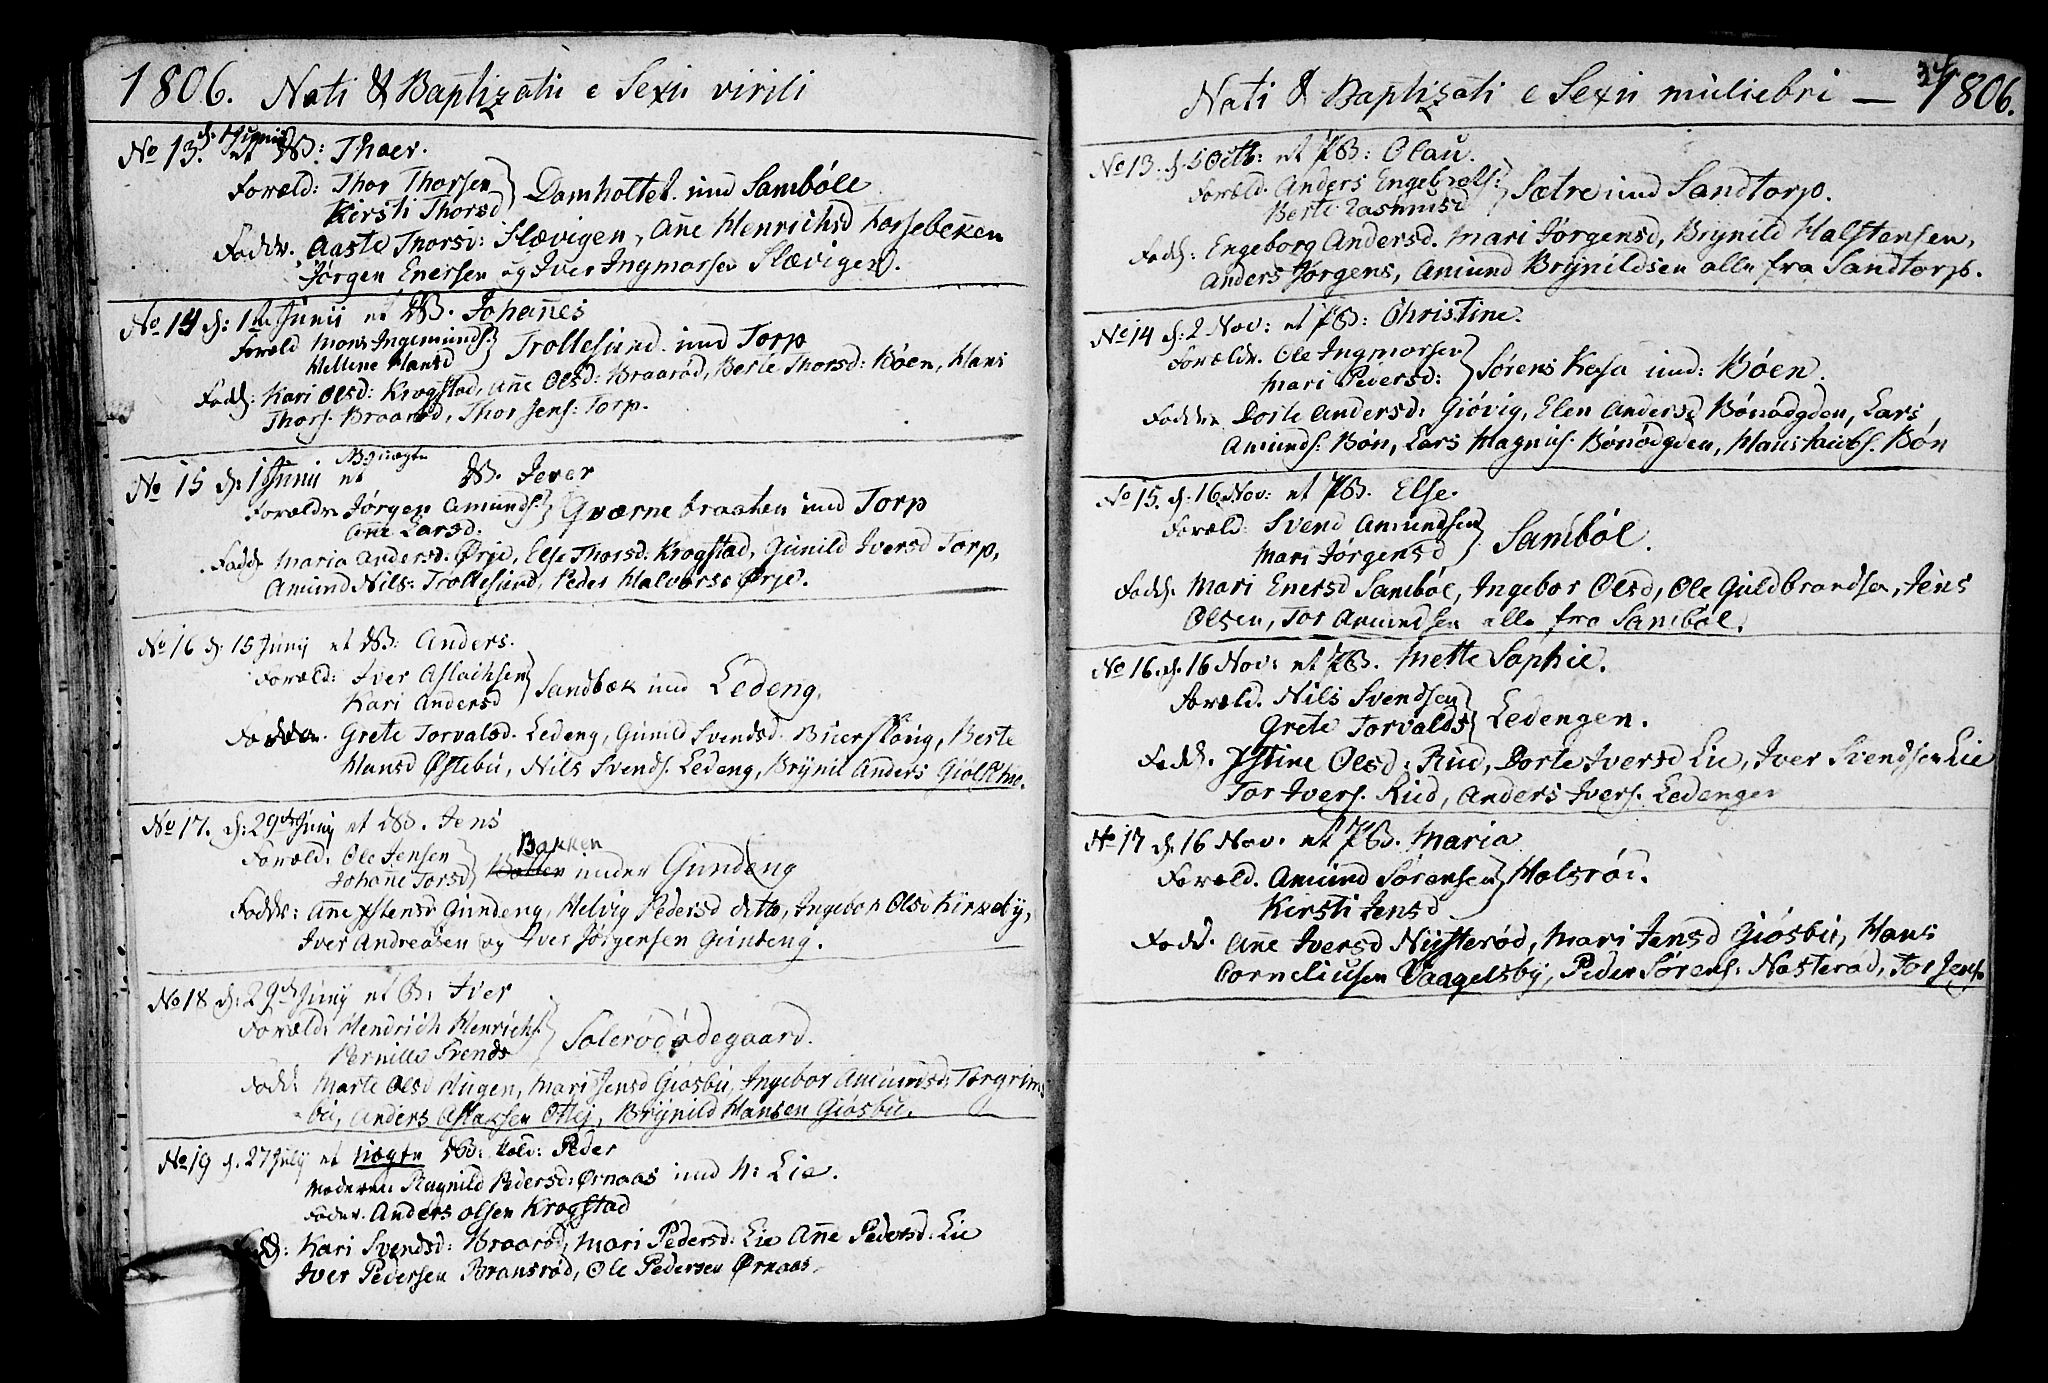 1806. Nati & Baptizati e Sexu virili
No 13. d. 1 Junii et DB: Thoer.
Foræld: Thor Thorsen
Kirsti Thorsd } Damholtet und Sambøle
Faddr. Aaste Thorsd: Slævigen, Añe Henrichsd Forsebekken
Jørgen Enersen og Iver Ingmorsen Slævigen.
No 14 d: 1te Junii et DB. Johañes
Foræld Mons Ingemunds.
Hellene Hansd } Trollesund und Torp
Fadd: Kari Olsd: Krogstad, Añe Olsd: Braarød, Berte Thorsd: Bøen, Hans
Thors. Braarød, Thor Jens: Torp.
No 15 d: 1 Junii et DB. Iever
Forældr Jørgen Amunds.
Añe Larsd. } Qværnebraaten und Torp
Fadd. Maria Andersd: Ørje, Else Thorsd. Krogstad, Gunild Iversd Torp,
Amund Nils: Trollesund, Peder Halvorse Ørje.
No 16 d. 15 Junij et DB. Anders.
Foræld: Iver Aslachsen
Kari Andersd } Sandbæk und Ledeng.
Faddr. Grete Torvalsd. Ledeng, Gunild Svendsd. Biørsløug, Berte
Hansd Østebu, Nils Svends. Ledeng, Brynil Anders Giølstue.
No 17. d: 29de Junij et DB. Jens
Foræld: Ole Jensen
Johañe Torsd } Bakken under Gundeng
Faddr: Añe Ystensd Gundeng, Helvig Pedersd ditto, Ingebor Olsd Kirkeby,
Iver Andreasen og Iver Jørgensen Gundeng.
No 18 d: 29de Junij et B: Iver
Foræld: Hendrich Henrichs.
Pernille Svends } Solerødødegaard.
Fadd. Marte Olsd Hugen, Mari Jensd Giøsbu, Ingebor Amundsd: Torgrims
bu, Anders Aslaksen Otlej, Brynild Hansen Giøsbu.
No 19 d. 27 July et uægte DB: kald: Peder
Moderen: Ragnild Pedersd: Ørnaas und N: Lie.
Fader. Anders Olsen Krogstad
Fad: Kari Svendsd: Braarød, Mari Pedersd: Lie Añe Pedersd: Lie
Iver Pedersen Bransrød, Ole Pedersen Ørnaas.
Nati & Baptizati e Sexu muliebri — 1806.
No 13. d. 5 Octb: et PB: Olau.
Foræld. Anders Engebrets:
Berte Rasmusd } Sætre und Sandtorp.
Fadd: Engeborg Andersd. Mari Jørgensd, Brynild Halstensen,
Anders Jørgens, Amund Brynildsen alle fra Sandtorp.
No 14 d. 2 Nov: et PB: Christine.
Forældr. Ole Ingmorsen
Mari Pedersd: } Sørens Kasa und: Bøen.
Faddr. Dorte Andersd: Giøvig, Elen Andersd Bønødgden, Lars
Amunds: Bøn, Lars Magnus. Bønødgden, Hans Jacobs. Bøn
No 15. d. 16 Nov: et PB. Else.
Foræld: Svend Amundsen
Mari Jørgensd } Sambøl.
Fadd. Mari Enersd Sambøl, Ingebor Olsd, Ole Guldbrandsen, Jens
Olsen, Tor Amundsen alle fra Sambøl.
No 16. d. 16 Nov: et PB. Mette Sophie.
Foræld. Nils Svendsen
Grete Torvalds } Ledengen.
Fadd. Ystine Olsd: Rud, Dorte Iversd Lie, Iver Svendsen Lie
Tor Ivers. Rud, Anders Ivers. Ledengen
No 17 d. 16 Nov. et PB. Maria
Foræld. Amund Sørensen
Kirsti Jensd } Holsrøi.
Fadd. Añe Iversd Nysterød, Mari Jensd Giøsbu, Hans
Corneliusen Vaagelsby, Peder Sørens: Nosterød, Tor Jens.